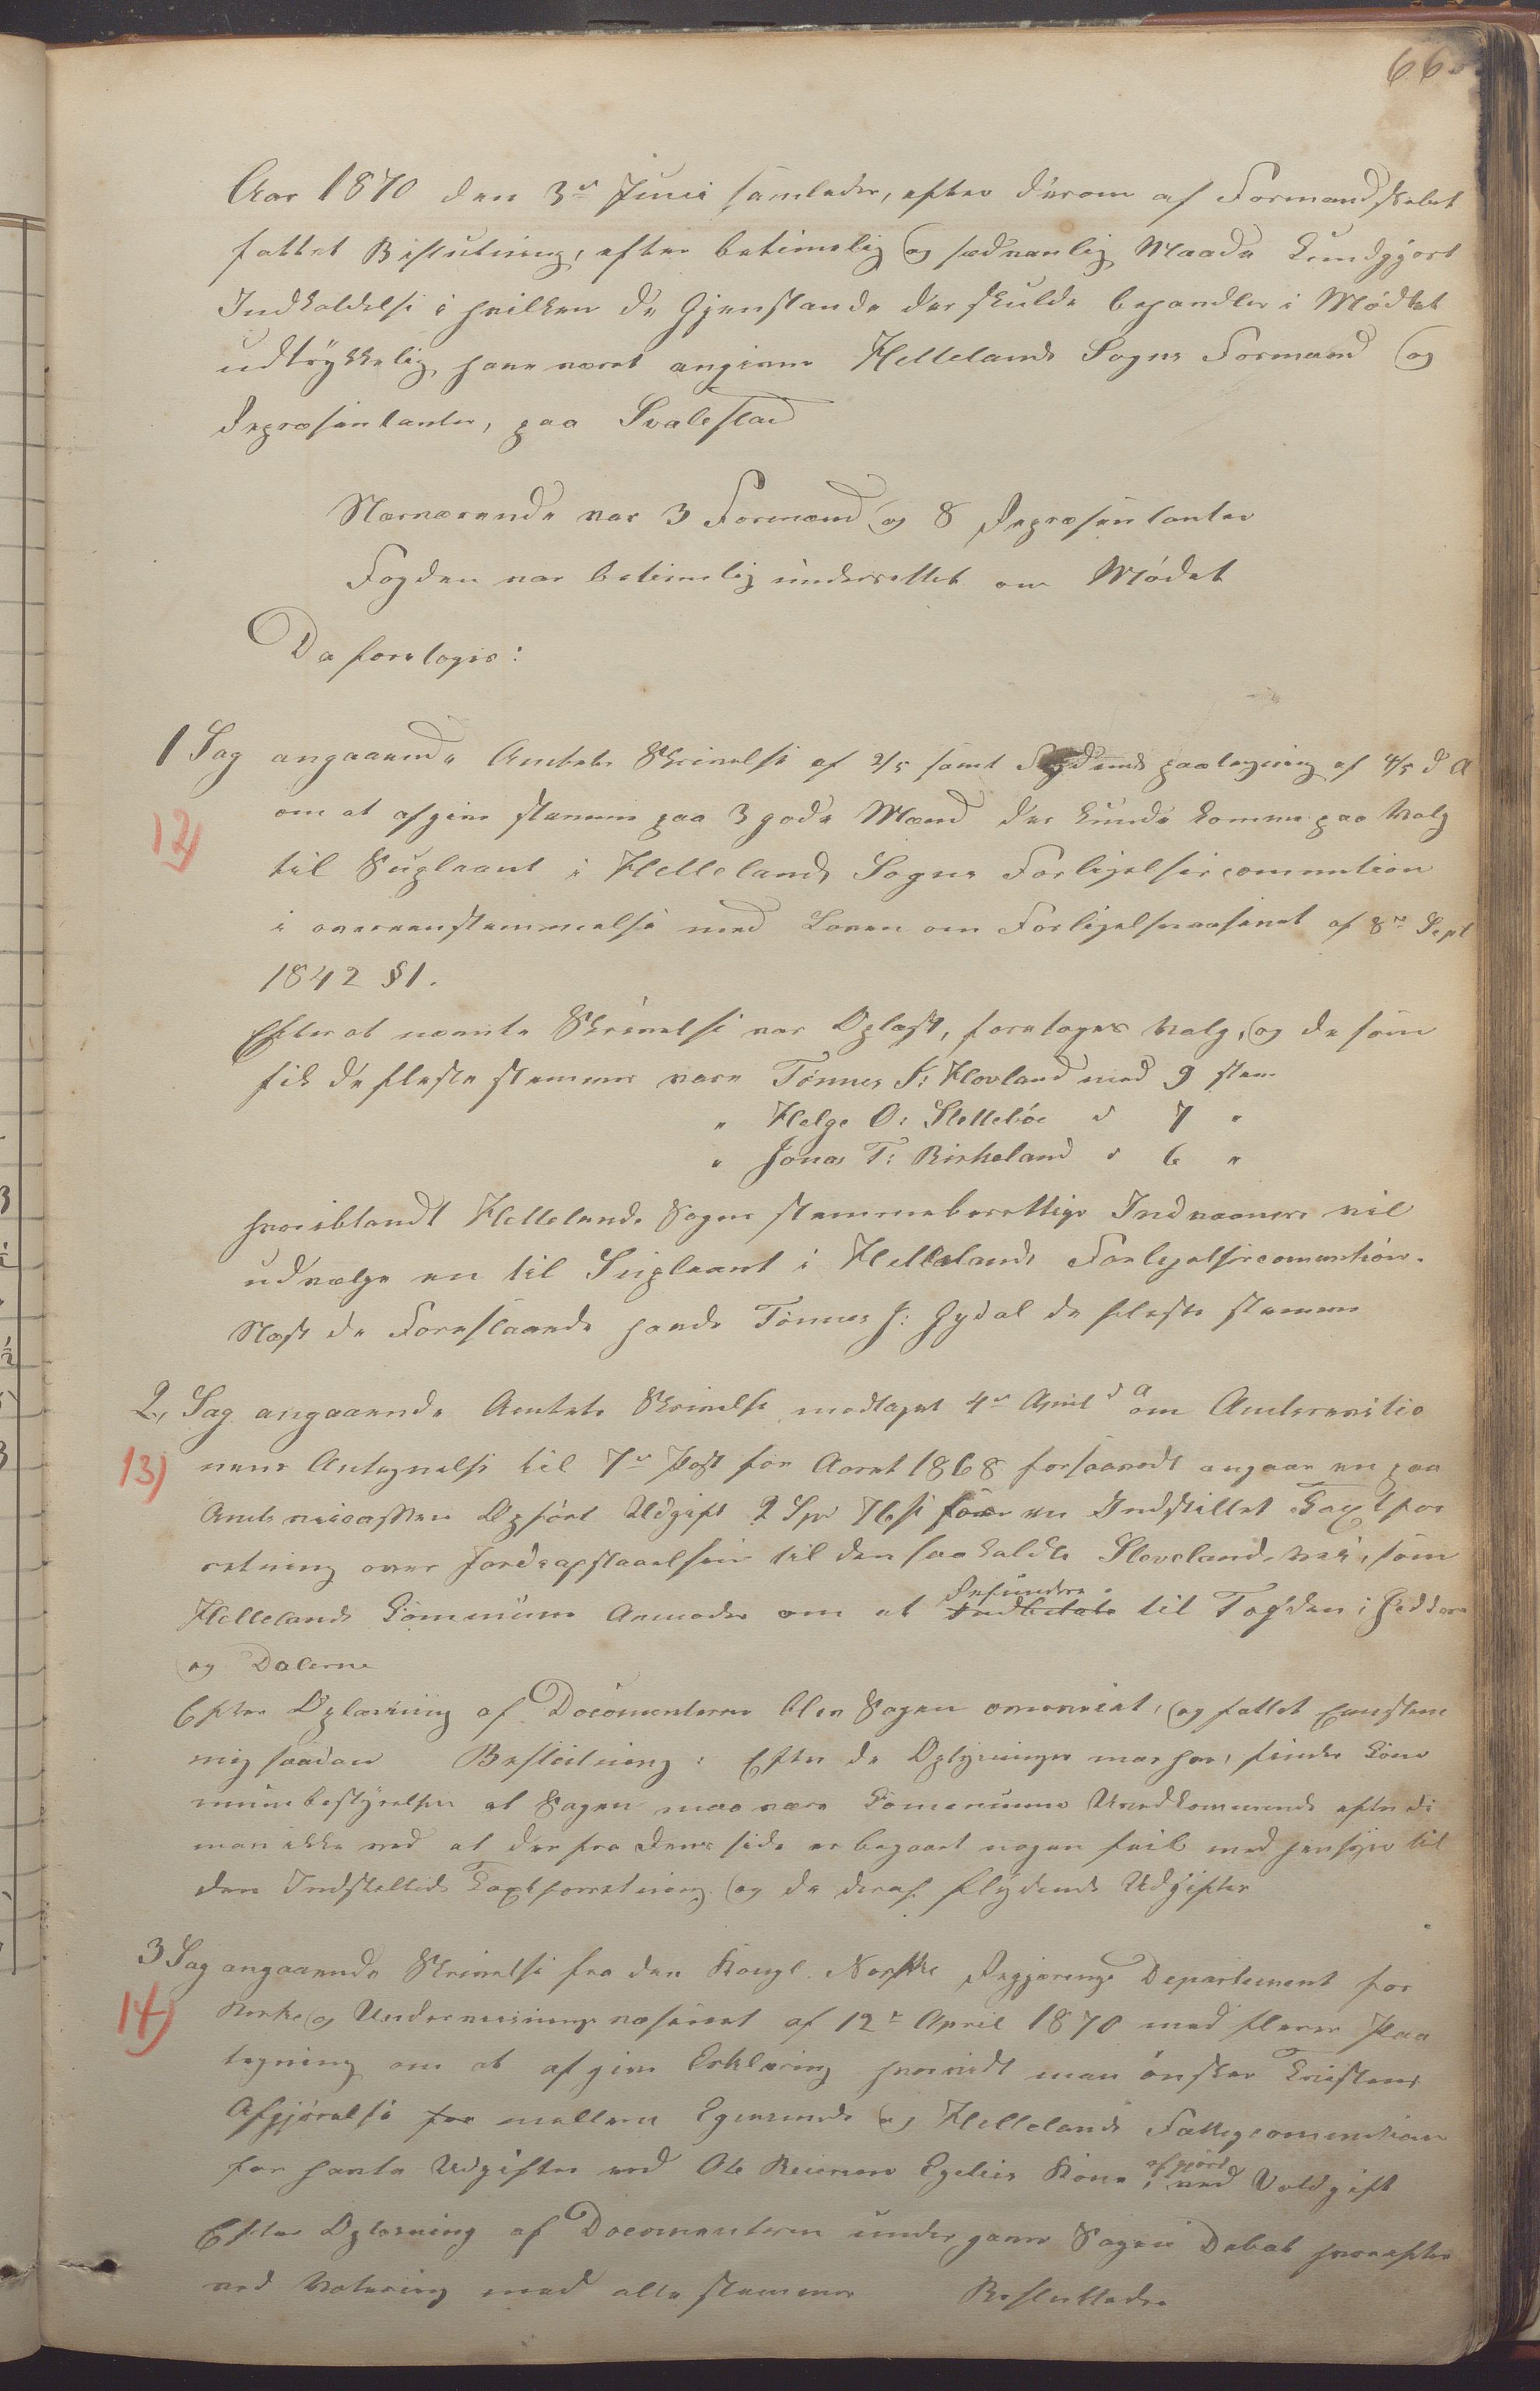 66
Aar 1870 den 3de Juni samledes, efter derom af Formandskabet
fattet Beslutning, efter betimelig og sædvanlig Maade kundgjort
Indkaldelse i hvilken de Gjenstande der skulde behandles i Mødet
udtrykkelig have været angivne Hellelands Sogns Formænd og
Repræsentanter, paa Svalestad
Nærværende var 3 Formænd og 8 Repræsentanter
Fogden var betimelig underrettet om Mødet
Da foretoges:
1 Sag angaaende Amtets Skrivelse af 2/5 samt Fogdens paategning af 4/5 d A
12)
om at afgive stemme paa 3 gode Mænd der kunde komme paa Valg
til Supleant i Hellelands Sogns Forligelsescommition
i overeenstemmelse med Loven om Forligelsesvæsenet af 8de Sept
1842 §1.
Efter at nævnte Skrivelse var Oplæst, foretoges Valg, og de som
fik de fleste stemmer vare Tønnes S: Hovland med 9 stem
" Helge O: Slettebøe " 7 "
" Jonas T: Birkeland " 6 "
hvoriblandt Hellelands Sogns stemmeberettige Indvaanere vil
udvælge en til Supleant i Hellelands Forligelsescommition.
Næst de Forestaaende havde Tønnes J: Gydal de fleste stemmer
2, Sag angaaende Amtets Skrivelse modtaget 4de April d A om Amtsrevitio
13)
nens Antegnelse til 7de Post for Aaret 1868 forsaavidt angaar en paa
Amtscassen Opført Udgift 2 Spd for en Indstillet Taxtfor
retning over Jordeafstaaelsen til den saakaldte Slevelands vei, som
Hellelands Commune Anmodes om at Indbetale Refundere til Fogden i Jedderen
og Dalerne
Efter Oplæsning af Documenterne blev Sagen omvoteret, og fattet Eenstem
mig saadan Beslutning: Efter de Oplysninger man har, finder Com
munebestyrelsen at Sagen maa være Communen Uvedkommende efterdi
man ikke ved at der fra dens side er begaaet nogen feil med hensyn til
den Indstillede Taxtforretning og de deraf flydende Udgifter
3 Sag angaaende Skrivelse fra den Kongl. Norske Regjerings Departement for
14)
Kirke og Undervisningsvæsenet af 12te April 1870 med flere Paa
tegning om at afgive Erklæring hvorvidt man ønsker Tvistens
Afgjørelse for mellem Egersunds og Hellelands Fattigcommition
for havte Udgifter ved Ole Reiersen Egelies Kone, afgjort ved Voldgift
Efter Oplæsning af Documenterne undergaves Sagen Debat hvorefter
ved Votering med alle stemmer Besluttedes